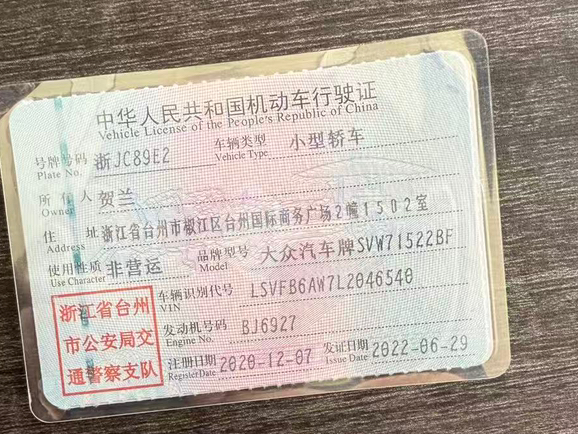 中华人民共和国机动车行驶证
Vehicle License of the People's Republic of China
号牌号码 浙JC89E2 车辆类型 小型轿车
Plate No. Vehicle Type
所有人 贺兰
Owner
住址 浙江省台州市椒江区台州国际商务广场2幢1502室
Address
使用性质 非营运 品牌型号 大众汽车牌SVW71522BF
Use Character Model
浙江省台州
市公安局交
通警察支队
车辆识别代号 LSVFB6AW7L2046540
VIN
发动机号码 BJ6927
Engine No.
注册日期 2020-12-07 发证日期 2022-06-29
Register Date Issue Date